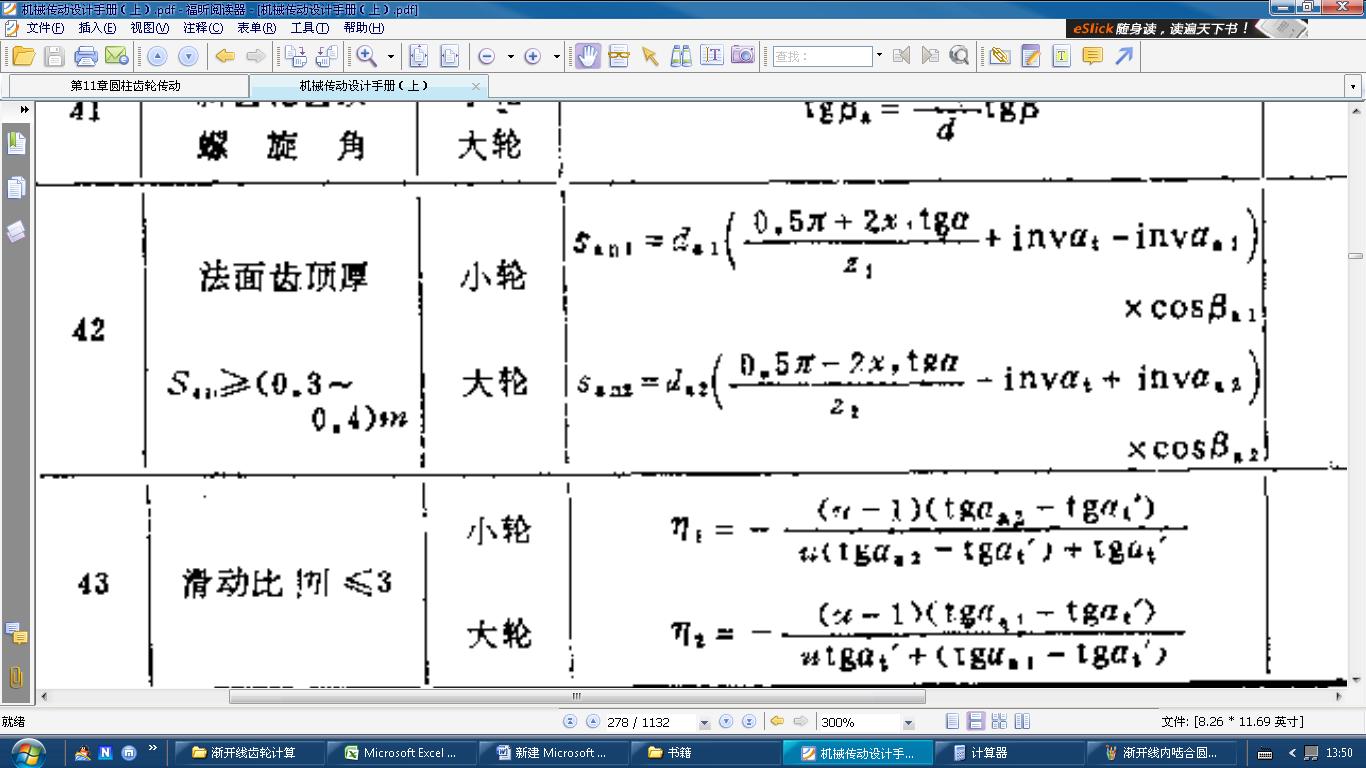 机械传动设计手册（上）.pdf - 福昕阅读器 - [机械传动设计手册（上）.pdf]
文件(F) 插入(E) 视图(V) 注释(C) 表单(R) 工具(T) 帮助(H)
eSlick 随身读，读遍天下书！
查找：
第11章圆柱齿轮传动 机械传动设计手册（上）
41
螺 旋 角 大轮 tgβₐ = d tgβ
42
法面齿顶厚 小轮 sₐₙ₁ = dₐ₁( (0.5π + 2x₁tgα)/z₁ + invαₜ - invαₐ₁ )
× cosβₐ₁
Sₐₙ ≥ (0.3~ 大轮 sₐₙ₂ = dₐ₂( (0.5π - 2x₂tgα)/z₂ - invαₜ + invαₐ₂ )
0.4)m × cosβₐ₂
43
小轮 η₁ = - (u - 1)(tgαₐ₂ - tgαₜ′) / u(tgαₐ₂ - tgαₜ′) + tgαₜ′
滑动比 |η| ≤3
大轮 η₂ = - (u - 1)(tgαₐ₁ - tgαₜ′) / utgαₜ′ + (tgαₐ₁ - tgαₜ′)
就绪 278 / 1132 300% 文件: [8.26 * 11.69 英寸]
渐开线齿轮计算 Microsoft Excel ... 新建 Microsoft ... 书籍 机械传动设计手... 计算器 渐开线内啮合圆... 13:50